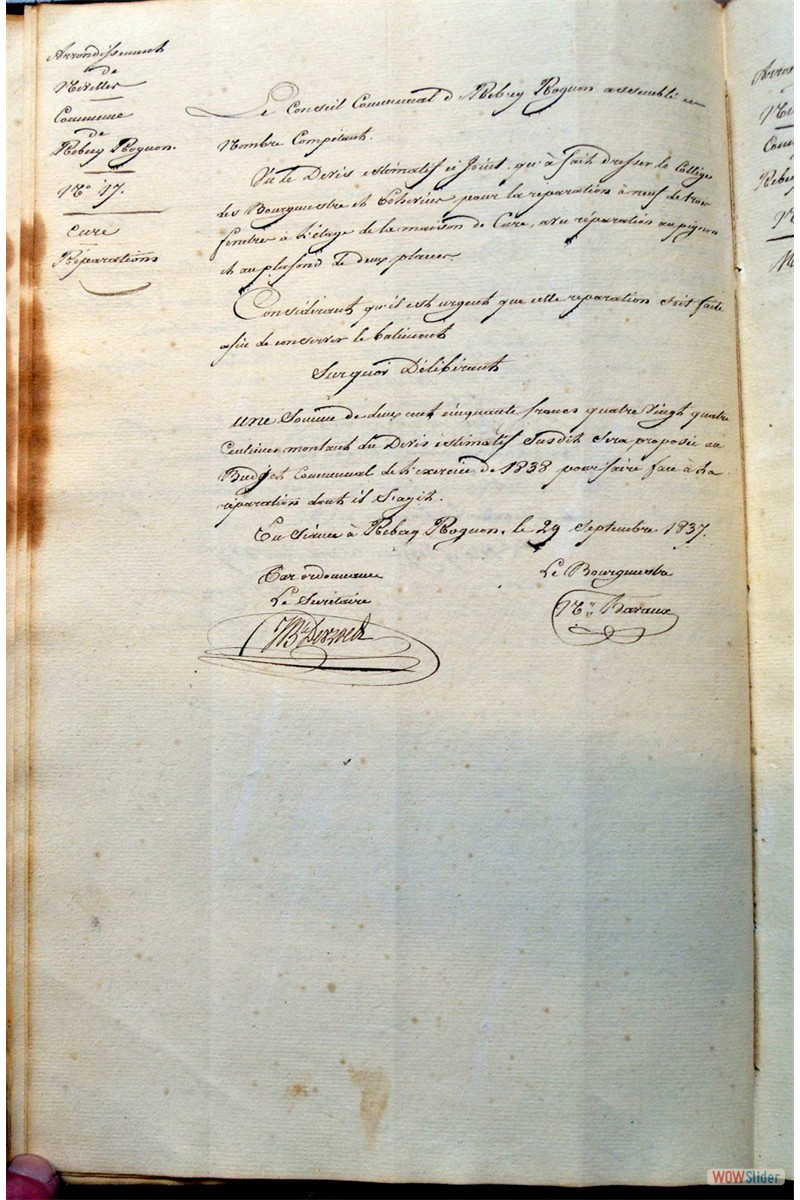 Arrondissement
de
Nivelles
Commune
de
Rebecq Rognon.
N° 17.
Cure
Réparations
Le Conseil Communal d Rebecq Rognon assemblé en
Nombre Compétant.
Vu le Devis estimatif ci Joint, qu'à fait dresser le Collège
des Bourgmestre et Echevins pour la reparation à neuf de trois
fenêtres à l'étage de la maison de Cure, avec réparation au pignon
et au plafond de deux places.
Considérant qu'il est urgent que cette reparation soit faite
afin de conserver le batiment
Surquoi Délibérant
une Somme de deux cent cinquante francs quatre vingt quatre
Centimes montant du Devis estimatif Susdit Sera proposée au
Budjet Communal de l'exercice de 1838 pour faire face à la
réparation dont il S'agit.
En Séance à Rebecq Rognon, le 29 Septembre 1837.
Par ordonnance
Le Secrétaire
Le Bourgmestre
Arros
Com
Rebecq
WOWSlider